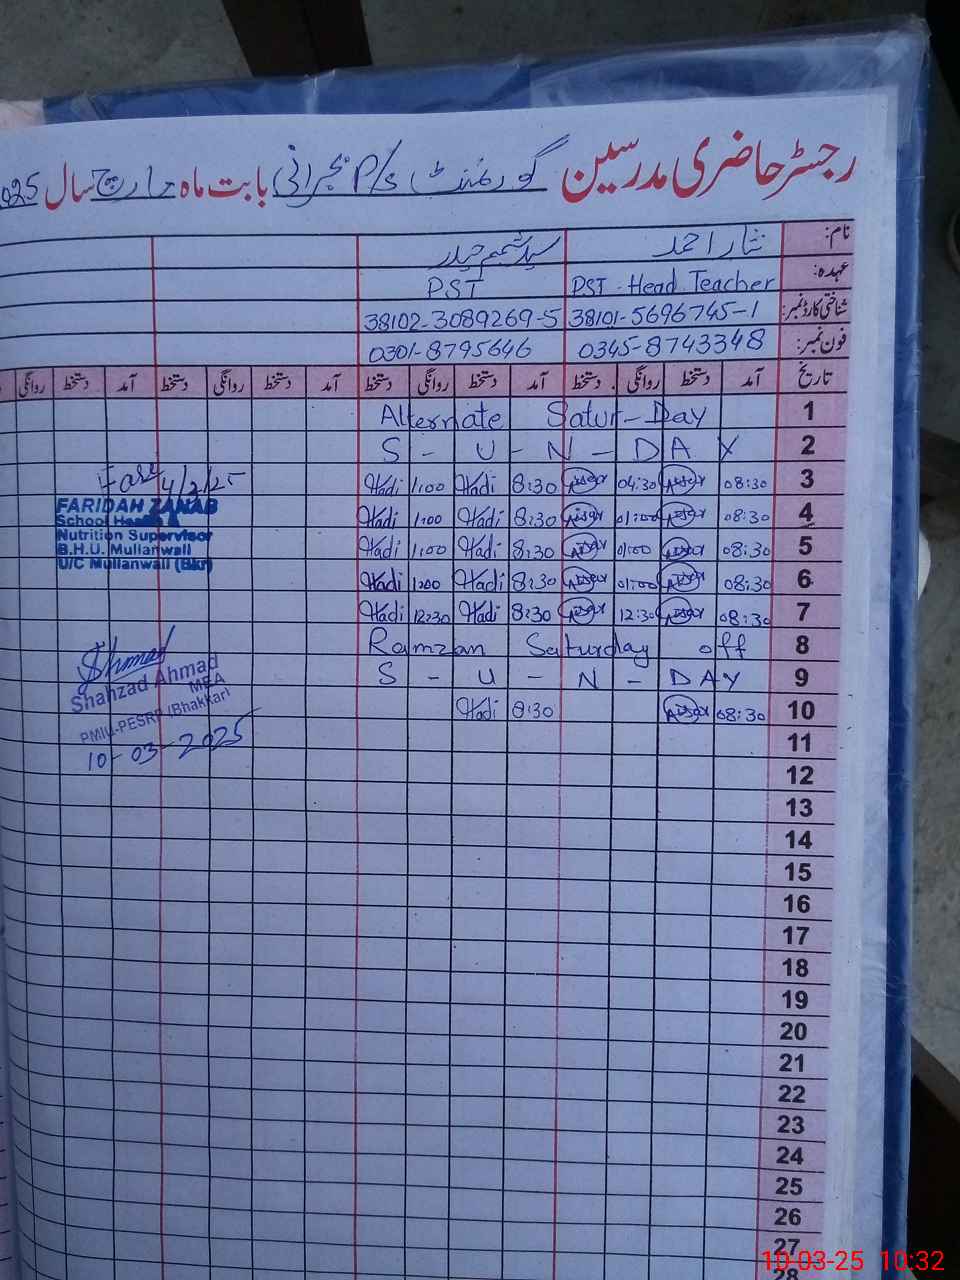 رجسٹر حاضری مدرسین گورنمنٹ P/S بابت ماہ مارچ سال 2025
نام: نثار احمد سید شمیم حیدر
عہدہ: PST - Head Teacher PST
شناختی کارڈ نمبر: 38101-5696745-1 38102-3089269-5
فون نمبر: 0345-8743348 0301-8795646
تاریخ آمد دستخط روانگی دستخط آمد دستخط روانگی دستخط آمد دستخط روانگی دستخط آمد دستخط روانگی
1 Alternate Satur-Day
2 S - U - N - DAY
3 08:30 Nisar 04:30 Nisar 8:30 Hadi 1:00 Hadi
4 08:30 Nisar 01:00 Nisar 8:30 Hadi 1:00 Hadi
5 08:30 Nisar 01:00 Nisar 8:30 Hadi 1:00 Hadi
6 08:30 Nisar 01:00 Nisar 8:30 Hadi 1:00 Hadi
7 08:30 Nisar 12:30 Nisar 8:30 Hadi 12:30 Hadi
8 Ramzan Saturday off
9 S - U - N - DAY
10 08:30 Nisar 8:30 Hadi
11
12
13
14
15
16
17
18
19
20
21
22
23
24
25
26
27
28
FARIDAH ZANAB
School Health &
Nutrition Supervisor
B.H.U. Mullanwali
U/C Mullanwali (Bkr)
Shahzad Ahmad
MEA
PMIU-PESRP (Bhakkar)
10-03-2025
10-03-25 10:32